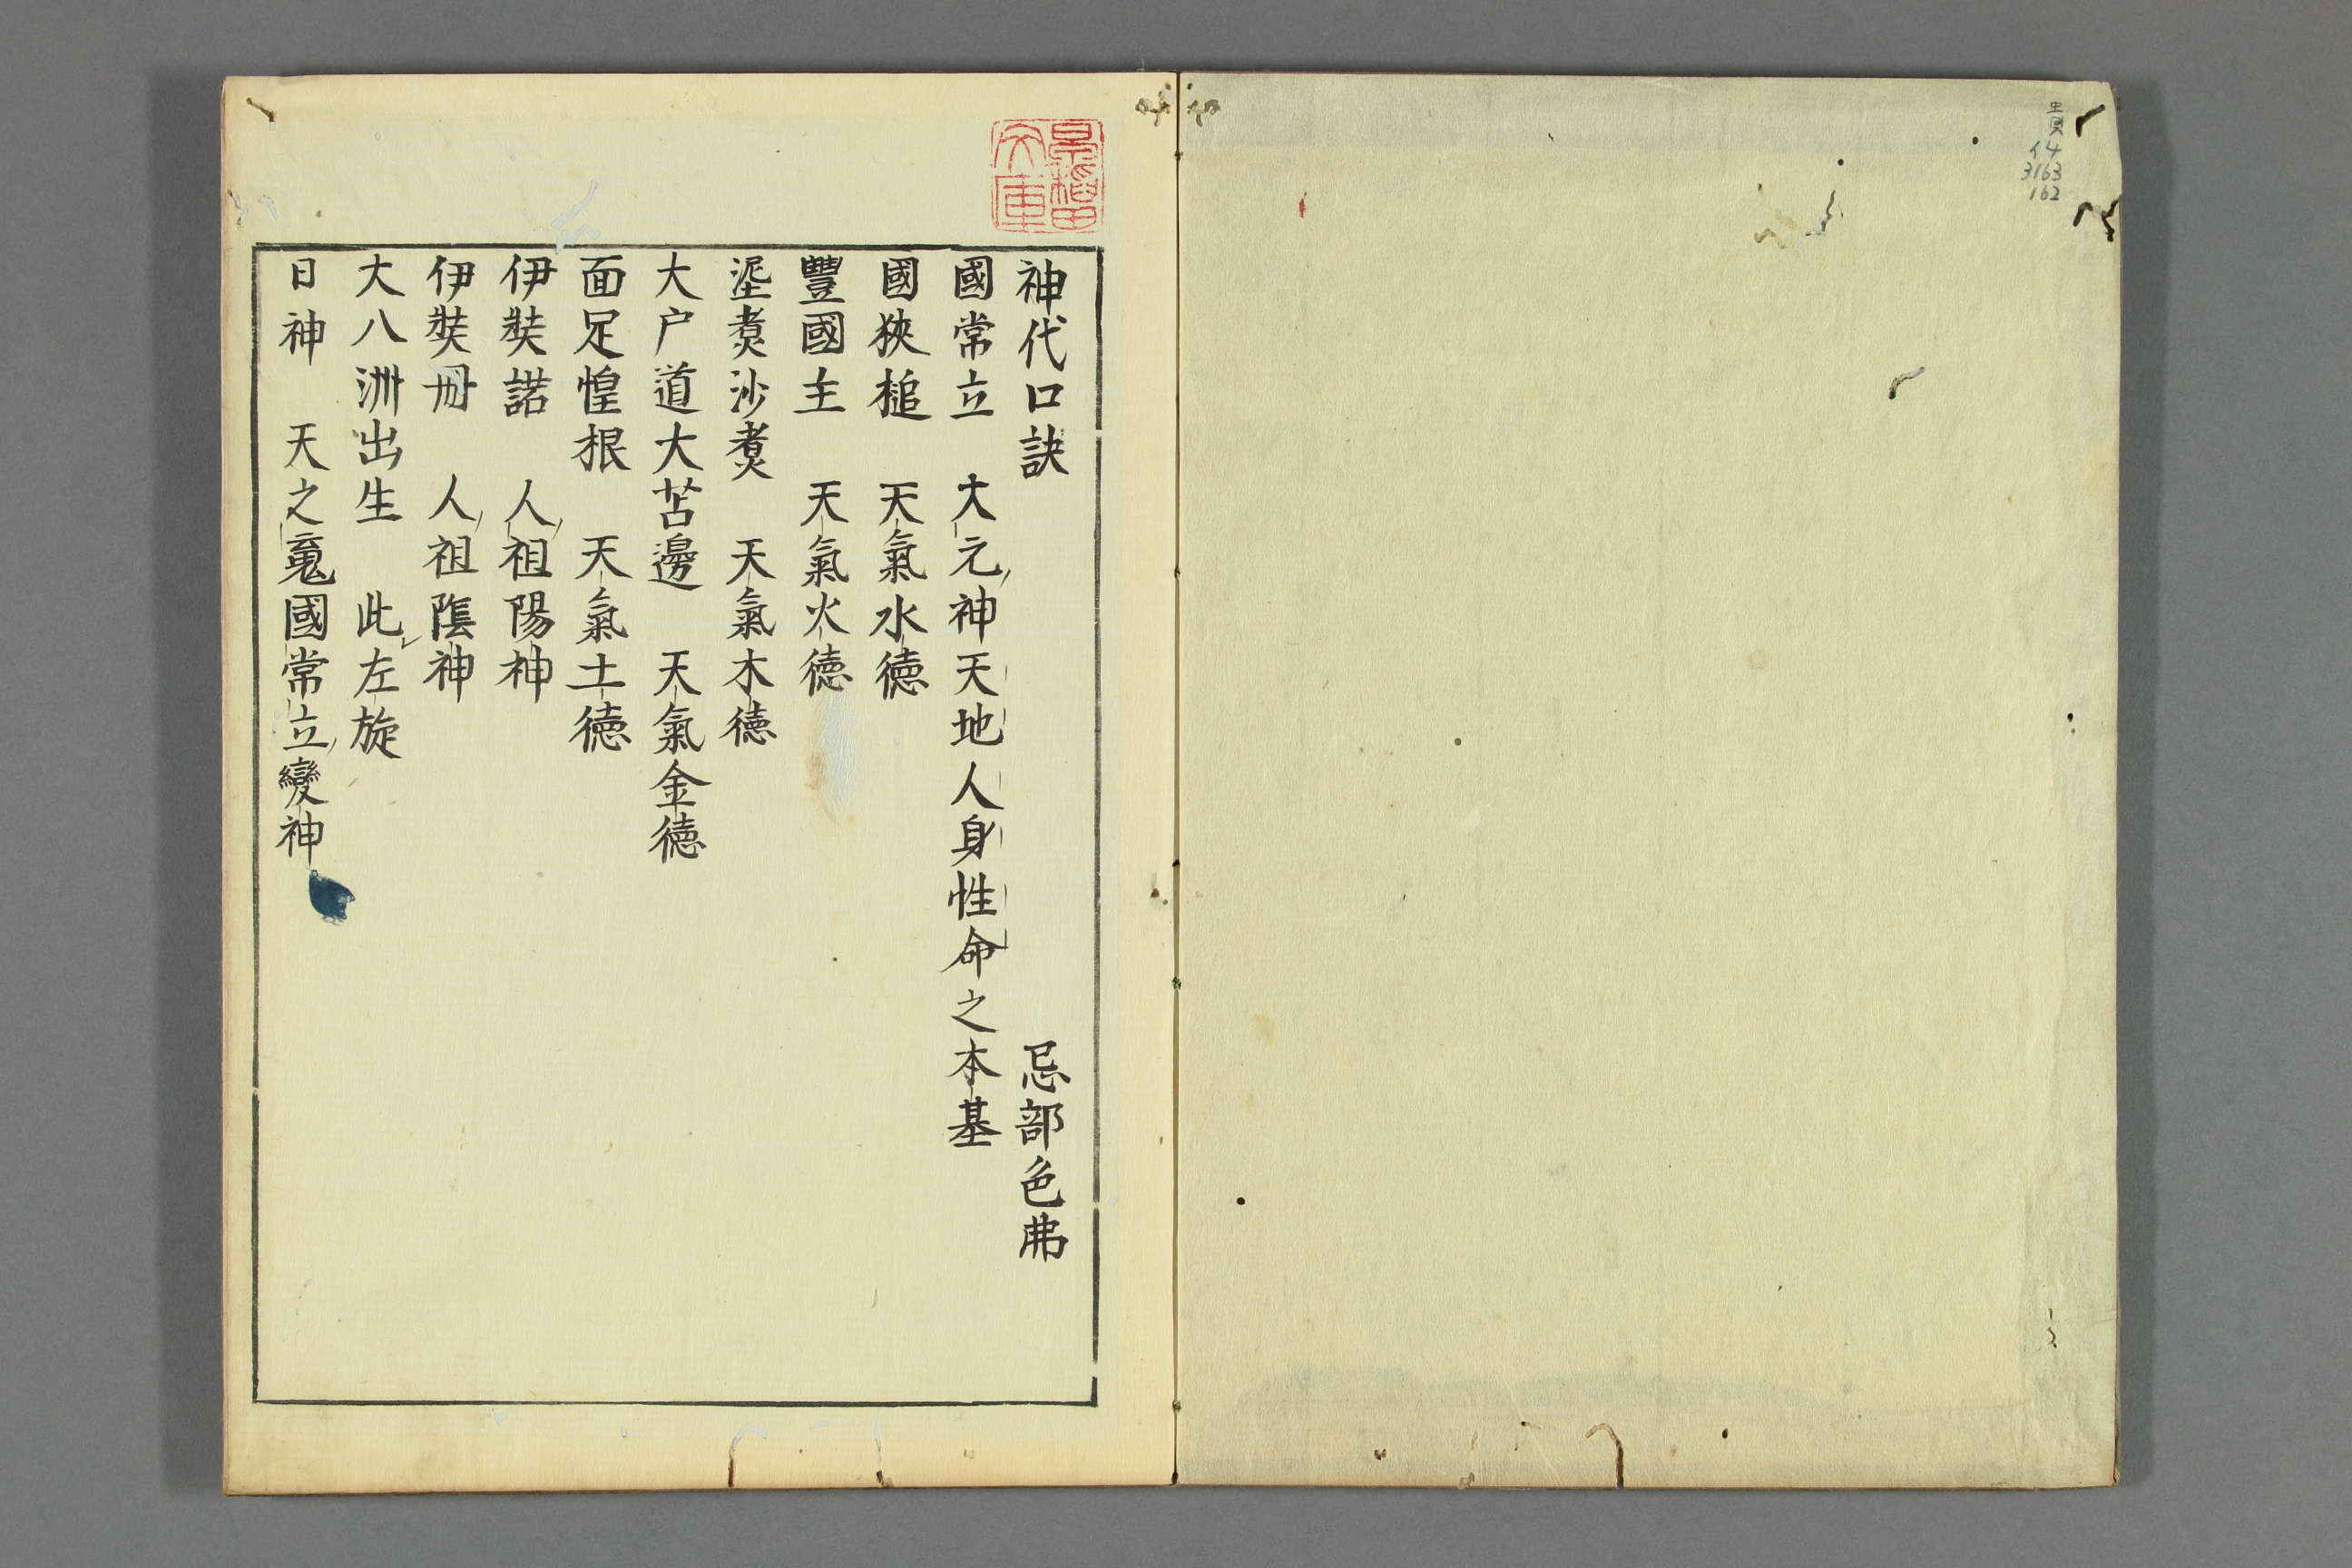 貴
イ4
3163
162
神代口訣　忌部色弗
國常立　大元神天地人身性命之本基
國狹槌　天氣水德
豐國主　天氣火德
埿煑沙煑　天氣木德
大户道大苫邊　天氣金德
面足惶根　天氣土德
伊奘諾　人祖陽神
伊奘冊　人祖陰神
大八洲出生　此左旋
日神　天之䰟國常立變神
文庫